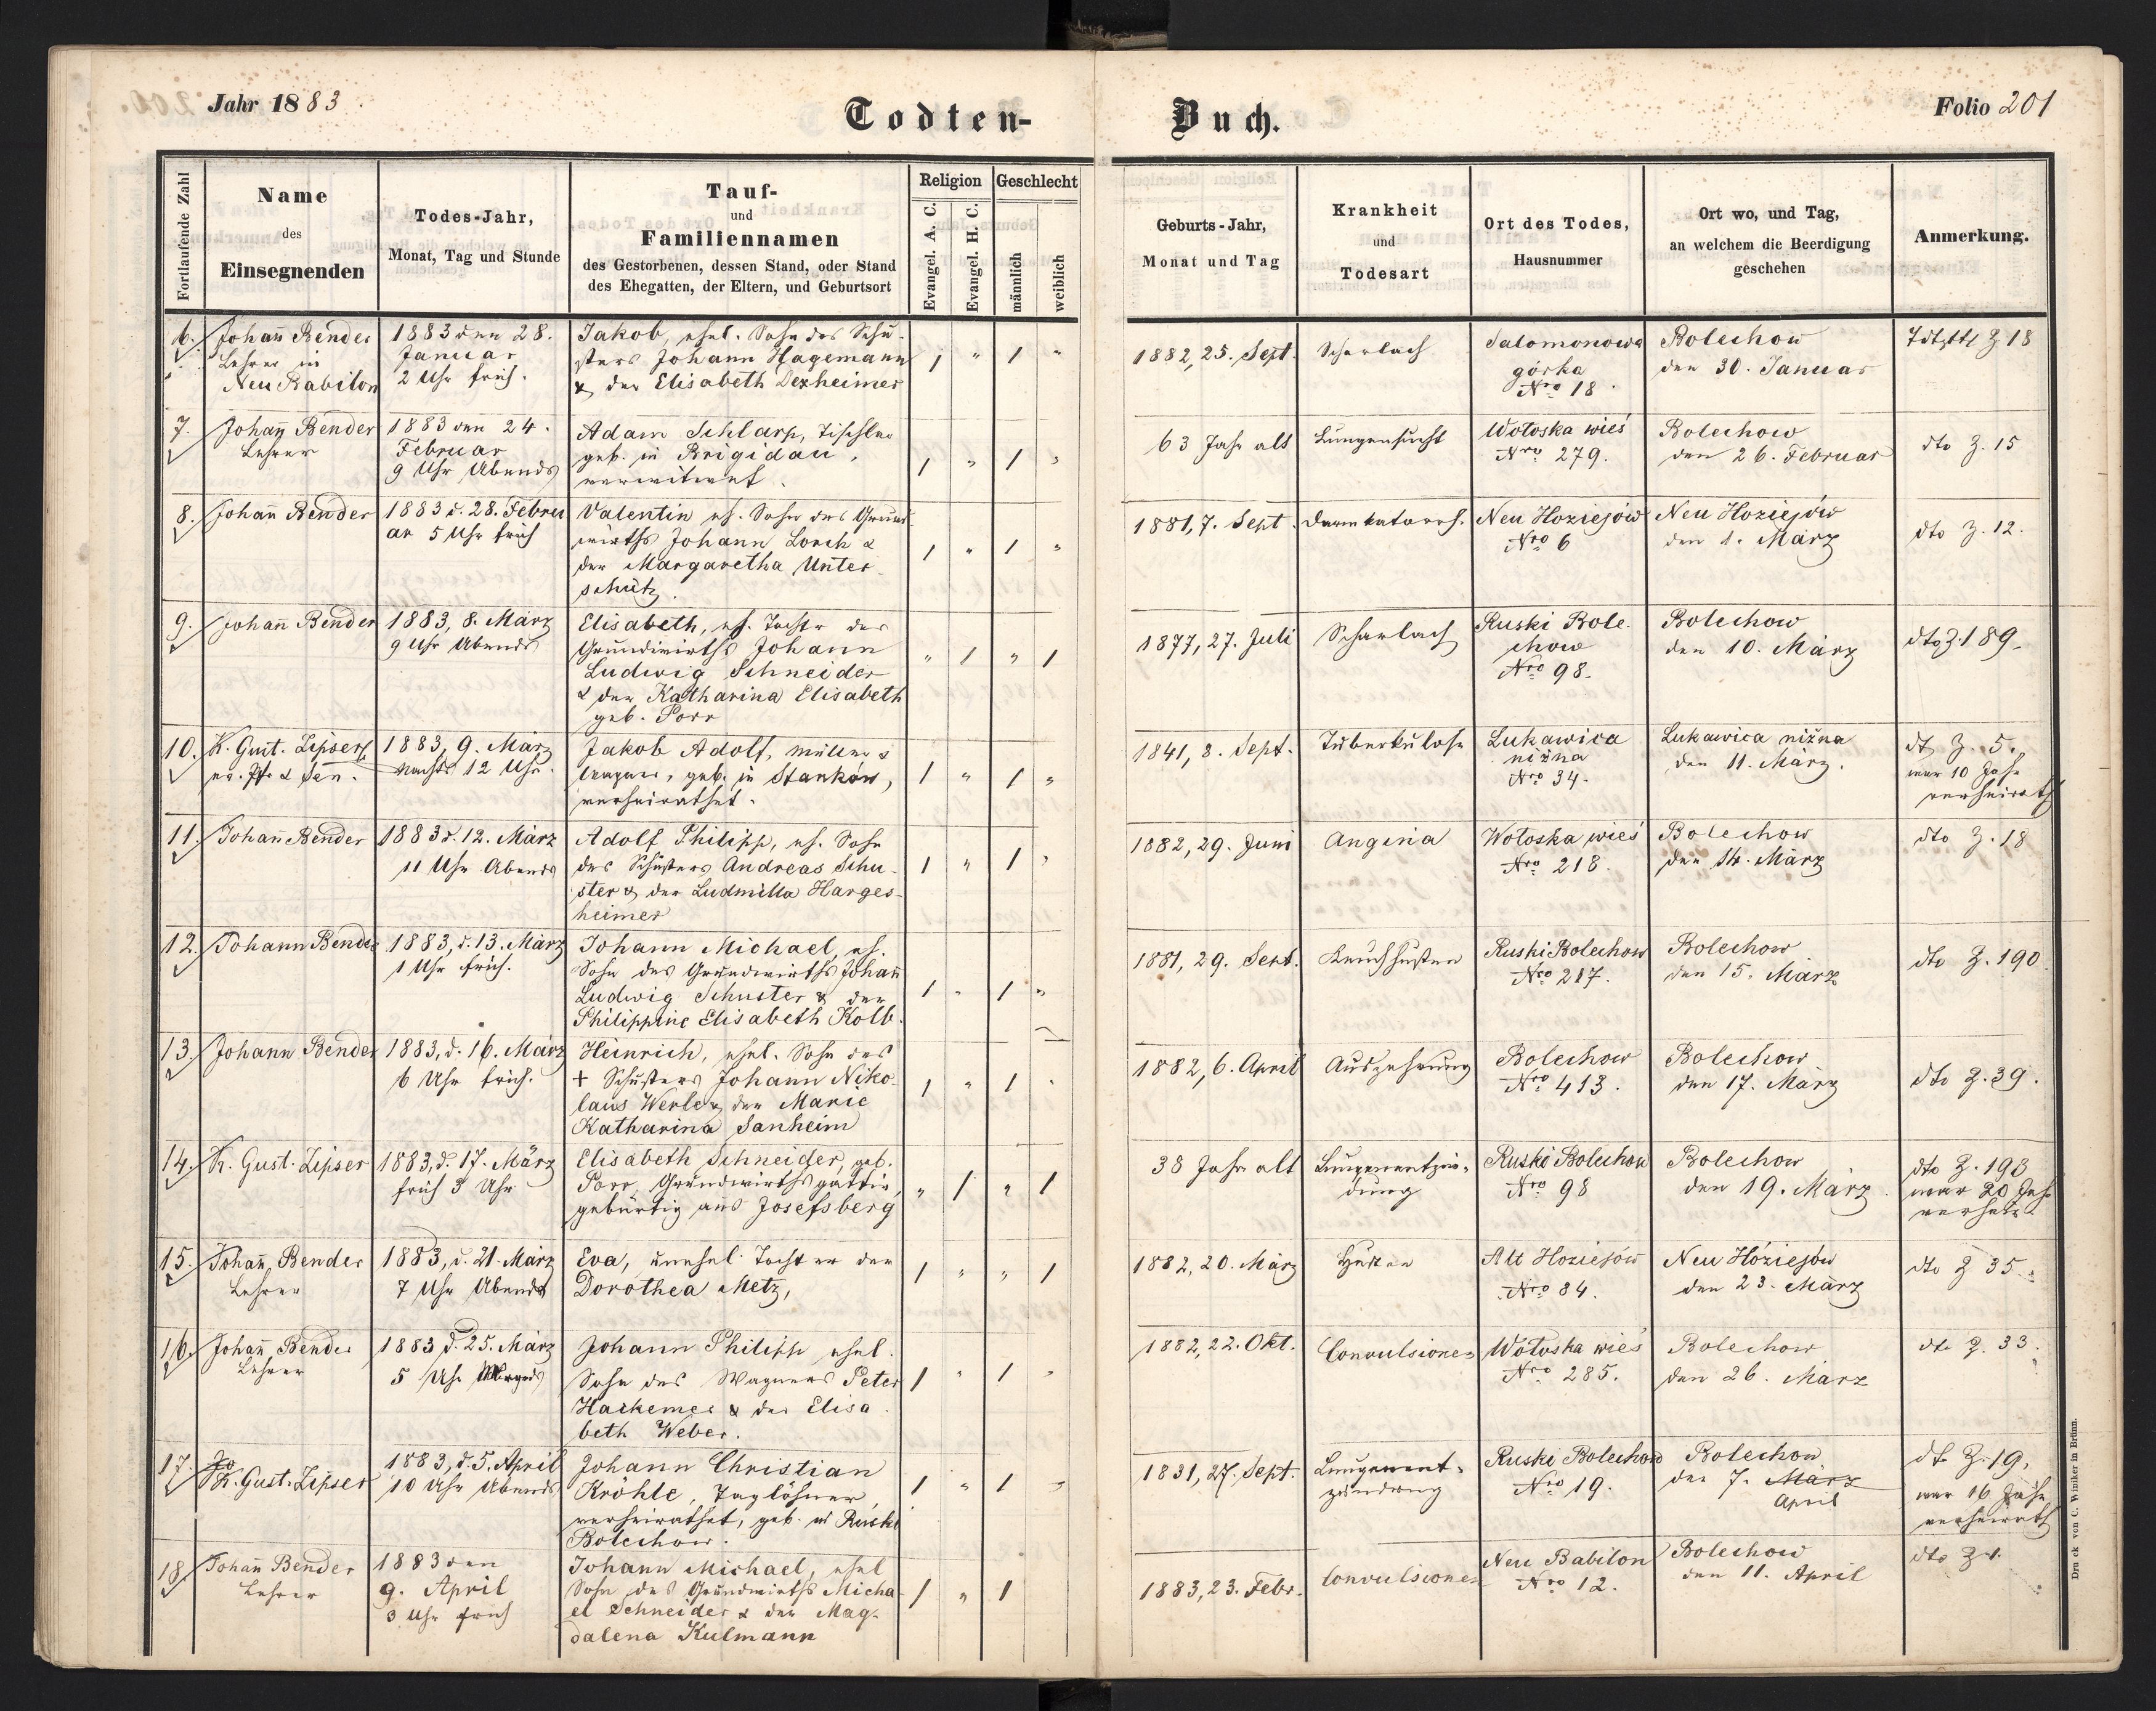 Jahr 1883.
Todten-
Buch.
Folio 201
Fortlaufende Zahl
Name
des
Einsegnenden
Todes-Jahr,
Monat, Tag und Stunde
Tauf-
und
Familiennamen
des Gestorbenen, dessen Stand, oder Stand
des Ehegatten, der Eltern, und Geburtsort
Religion
Evangel. A. C.
Evangel. H. C.
Geschlecht
männlich
weiblich
Geburts-Jahr,
Monat und Tag
Krankheit
und
Todesart
Ort des Todes,
Hausnummer
Ort wo, und Tag,
an welchem die Beerdigung
geschehen
Anmerkung.
6.
Johañ Bender
Lehrer in
Neu Babilon
1883 den 28.
Januar
2 Uhr früh.
Jakob, ehel. Sohn des Schu-
sters Johann Hagemann
& der Elisabeth Dexheimer
1 " 1 "
1882, 25. Sept.
Scharlach
Salomonowa
górka
Nro 18.
Bolechow
den 30. Januar
Z 18
7.
Johañ Bender
Lehrer
1883 den 24.
Februar
9 Uhr Abends
Adam Schlarp, Tischler
geb. in Brigidau,
verwitwet.
1 " 1 "
63 Jahr alt
Lungensucht
Wołoska wieś
Nro 279.
Bolechow
den 26. Februar
dto Z. 15
8.
Johañ Bender
1883 d. 28. Febru
ar 5 Uhr früh
Valentin eh. Sohn des Grund-
wirths Johann Lorch &
der Margaretha Unter-
schütz.
1 " 1 "
1881, 7. Sept.
Darmkatarrh.
Neu Hoziejów
Nro 6
Neu Hoziejów
den 1. März
dto Z. 12.
9.
Johañ Bender
1883, 8. März
9 Uhr Abends
Elisabeth, eh. Tochter des
Grundwirths Johann
Ludwig Schneider
& der Katharina Elisabeth
geb. Porr
" 1 " 1
1877, 27. Juli
Scharlach
Ruski Bole-
chow
Nro 98.
Bolechow
den 10. März
dto Z. 189.
10.
K. Gust. Lipser,
ev. Pfr & Sen.
1883, 9. März
Nachts 12 Uhr.
Jakob Adolf, Müller &
Wagner, geb. in Stanków,
verheirathet.
1 " 1 "
1841, 8. Sept.
Tuberkulose
Lukawica
niżna
Nro 34.
Lukawica niżna
den 11. März.
dt Z. 5.
war 10 Jahr
verheirath
11.
Johañ Bender
1883 d. 12. März
11 Uhr Abends
Adolf Philipp, eh. Sohn
des Schusters Andreas Schu-
ster & der Ludmilla Harges-
heimer
1 " 1 "
1882, 29. Juni
Angina
Wołoska wieś
Nro 218.
Bolechow
den 14. März
dto Z. 18
12.
Johann Bender
1883, d. 13. März
1 Uhr früh.
Johann Michael, eh.
Sohn des Grundwirths Johañ
Ludwig Schuster & der
Philippine Elisabeth Kolb.
1 " 1 "
1881, 29. Sept.
Keuchhusten
Ruski Bolechow
Nro 217.
Bolechow
den 15. März
dto Z. 190
13.
Johann Bender
1883, d. 16. März
6 Uhr früh.
Heinrich, ehel. Sohn des
+ Schusters Johann Niko-
laus Werle & der Marie
Katharina Sanheim
1 " 1 "
1882, 6. April
Auszehrung
Bolechow
Nro 413.
Bolechow
den 17. März
dto Z. 39.
14.
K. Gust. Lipser
1883, d. 17. März
früh 3 Uhr
Elisabeth Schneider, geb.
Porr, Grundwirths gattin,
gebürtig aus Josefsberg
" 1 " 1
38 Jahr alt
Lungenentzün-
dung
Ruski Bolechow
Nro 98
Bolechow
den 19. März
dto Z. 198
war 20 Jahr
verheir.
15.
Johañ Bender
Lehrer
1883, d. 21. März
7 Uhr Abends
Eva, unehel. Tochter der
Dorothea Metz,
1 " " 1
1882, 20. März
Husten
Alt Hoziejów
Nro 34.
Neu Hoziejów
den 23. März
dto Z 35.
16.
Johañ Bender
Lehrer
1883 d. 25. März
5 Uhr
Johann Philipp ehel.
Sohn des Wagners Peter
Harkemer & der Elisa-
beth Weber.
1 " 1 "
1882, 22. Okt.
Convulsionen
Wołoska wieś
Nro 285.
Bolechow
den 26. März
dto Z. 33.
17.
Jo
K. Gust. Lipser
1883, d. 5. April
10 Uhr Abends
Johann Christian
Kröhle, Taglöhner,
verheirathet, geb. in Ruski
Bolechow.
1 " 1 "
1831, 27. Sept.
Lungenent-
zündung
Ruski Bolechow
Nro 19.
Bolechow
den 7. März
April
dto Z. 19,
war 16 Jahr
verheirath
18.
Johañ Bender
Lehrer
1883 den
9. April
3 Uhr früh
Johann Michael, ehel
Sohn des Grundwirths Micha-
el Schneider & der Mag-
dalena Kulmann
1 " 1
1883, 23. Febr.
Convulsionen
Neu Babilon
Nro 12.
Bolechow
den 11. April
dto Z 1.
Druck von C. Winiker in Brünn.